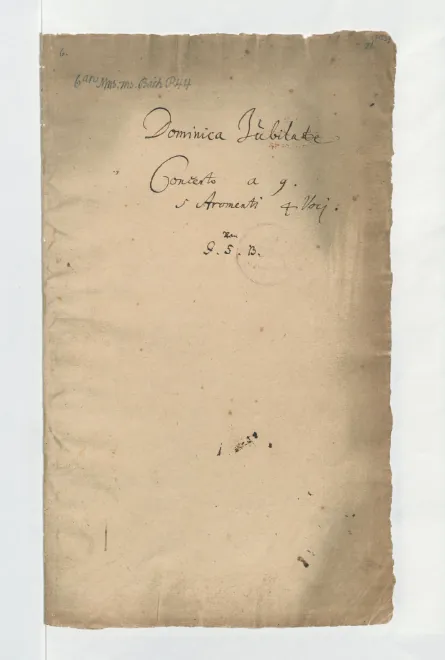 6.
Mus. ms. Bach P 44
Dominica Jubilate
Concerto a 9.
5 Stromenti 4 Voci.
J. S. B.